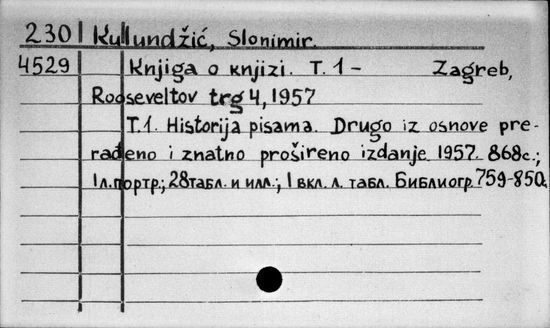 230 Kulundžić, Slonimir.
4529 Knjiga o knjizi. T. 1 – Zagreb,
Rooseveltov trg 4, 1957
T.1. Historija pisama. Drugo iz osnove pre-
rađeno i znatno prošireno izdanje 1957. 868c.;
1 л. портр.; 28 табл. и илл.; 1 вкл. л. табл. Библиогр. 759-850.